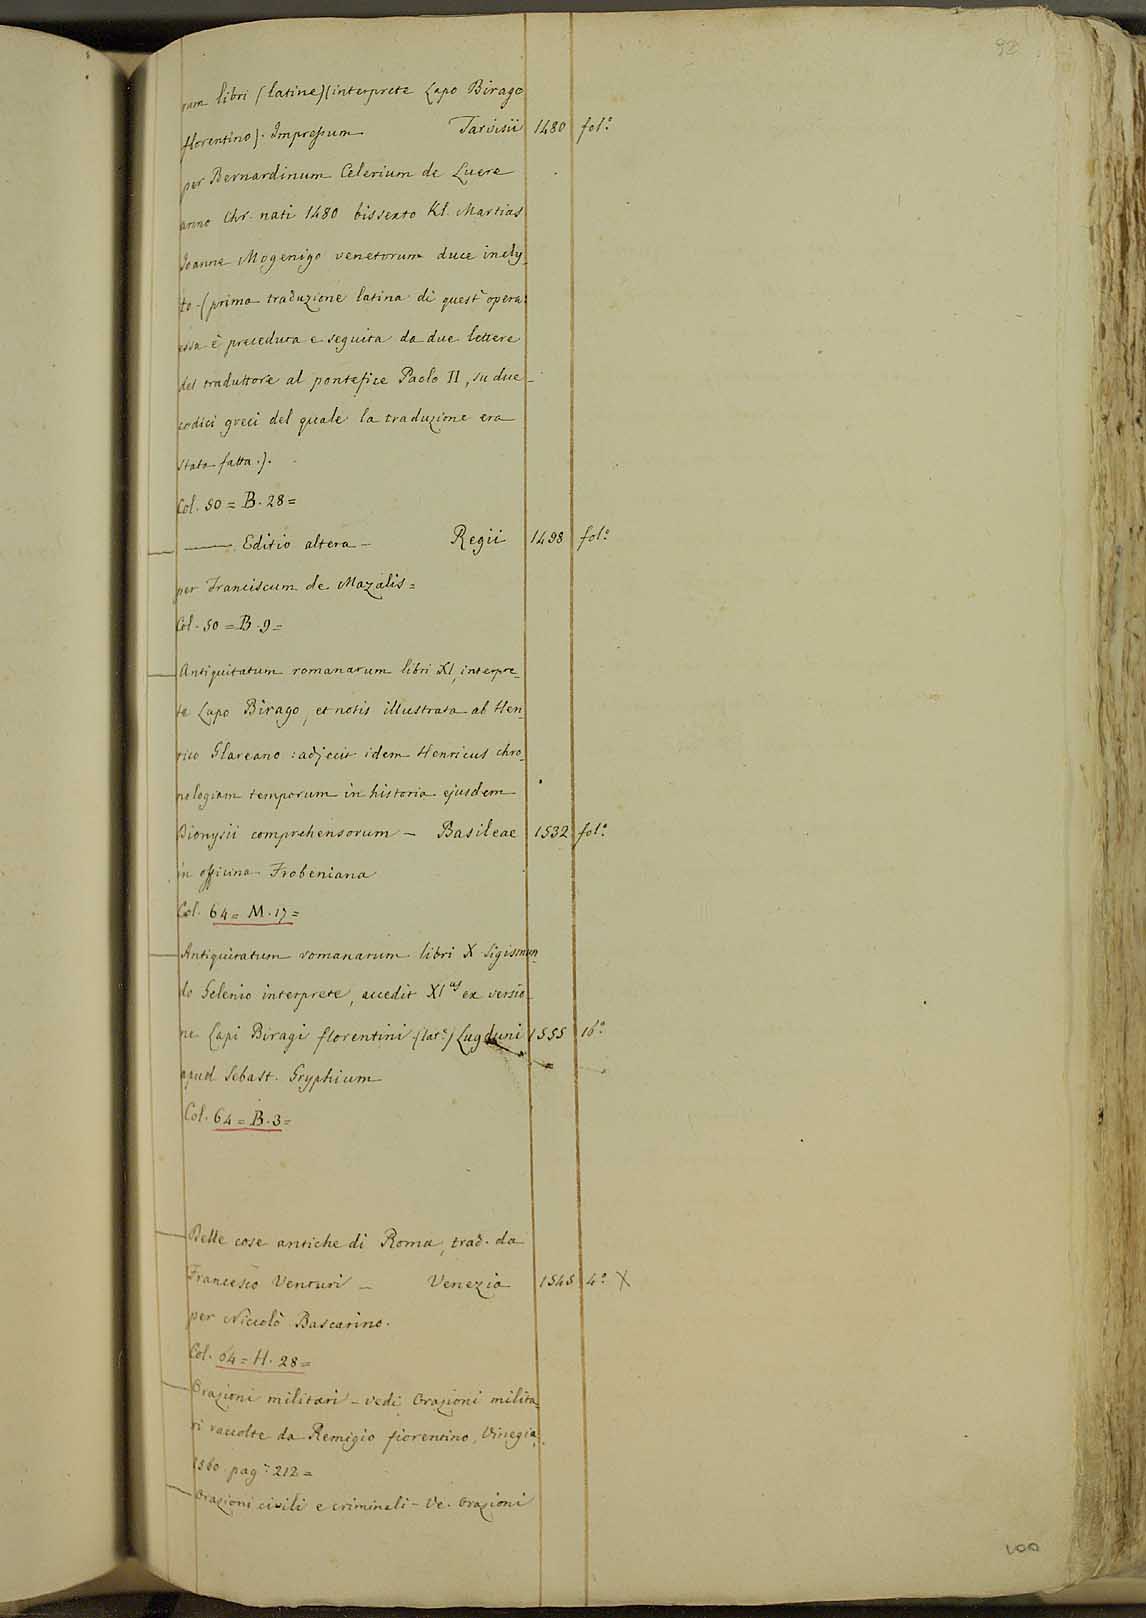 92
rum libri (latine) (interprete Lapo Birago
florentino). Impressum Tarvisii 1480 fol.º
per Bernardinum Celerium de Luere
anno Chr. nati 1480 bissexto Kl. Martias
Joanne Mogenigo venetorum duce incly-
to - (prima traduzione latina di quest' opera:
essa è preceduta e seguita da due lettere
del traduttore al pontefice Paolo II, su due
codici greci del quale la traduzione era
stata fatta.).
Col. 50 = B. 28 =
—— Editio altera — Regii 1498 fol.º
per Franciscum de Mazalis =
Col. 50 = B. 9 =
Antiquitatum romanarum libri XI, interpre-
te Lapo Birago, et notis illustrata ab Hen-
rico Glareano : adjecit idem Henricus chro-
nologiam temporum in historia ejusdem
Dionysii comprehensorum — Basileae 1532 fol.º
in officina Frobeniana
Col. 64 = M. 17 =
Antiquitatum romanarum libri X Sigismun-
do Gelenio interprete, accedit XIus ex versio-
ne Lapi Biragi florentini (lat.e) Lugduni 1555 16.º
apud Sebast. Gryphium
Col. 64 = B. 3 =
Delle cose antiche di Roma, trad. da
Francesco Venturi — Venezia 1545 4.º X
per Niccolò Bascarino.
Col. 64 = H. 28 =
Orazioni militari - vedi Orazioni milita-
ri raccolte da Remigio fiorentino, Vinegia,
1560 pag.e 212 =
Orazioni civili e criminali - Ve. Orazioni
100